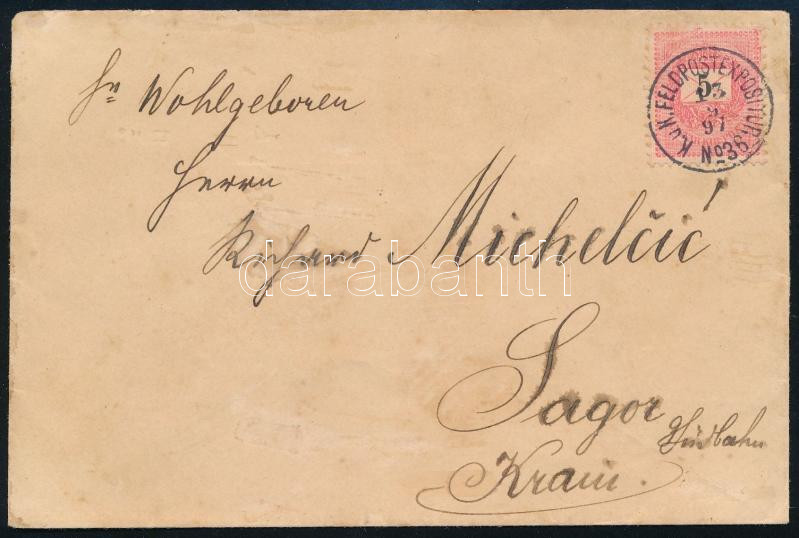 Sr Wohlgeboren
Herrn
Richard Michelčić
Sagor
Südbahn
Krain.
K.u.K. FELDPOSTEXPOSITUR No 36
5
97
darabanth